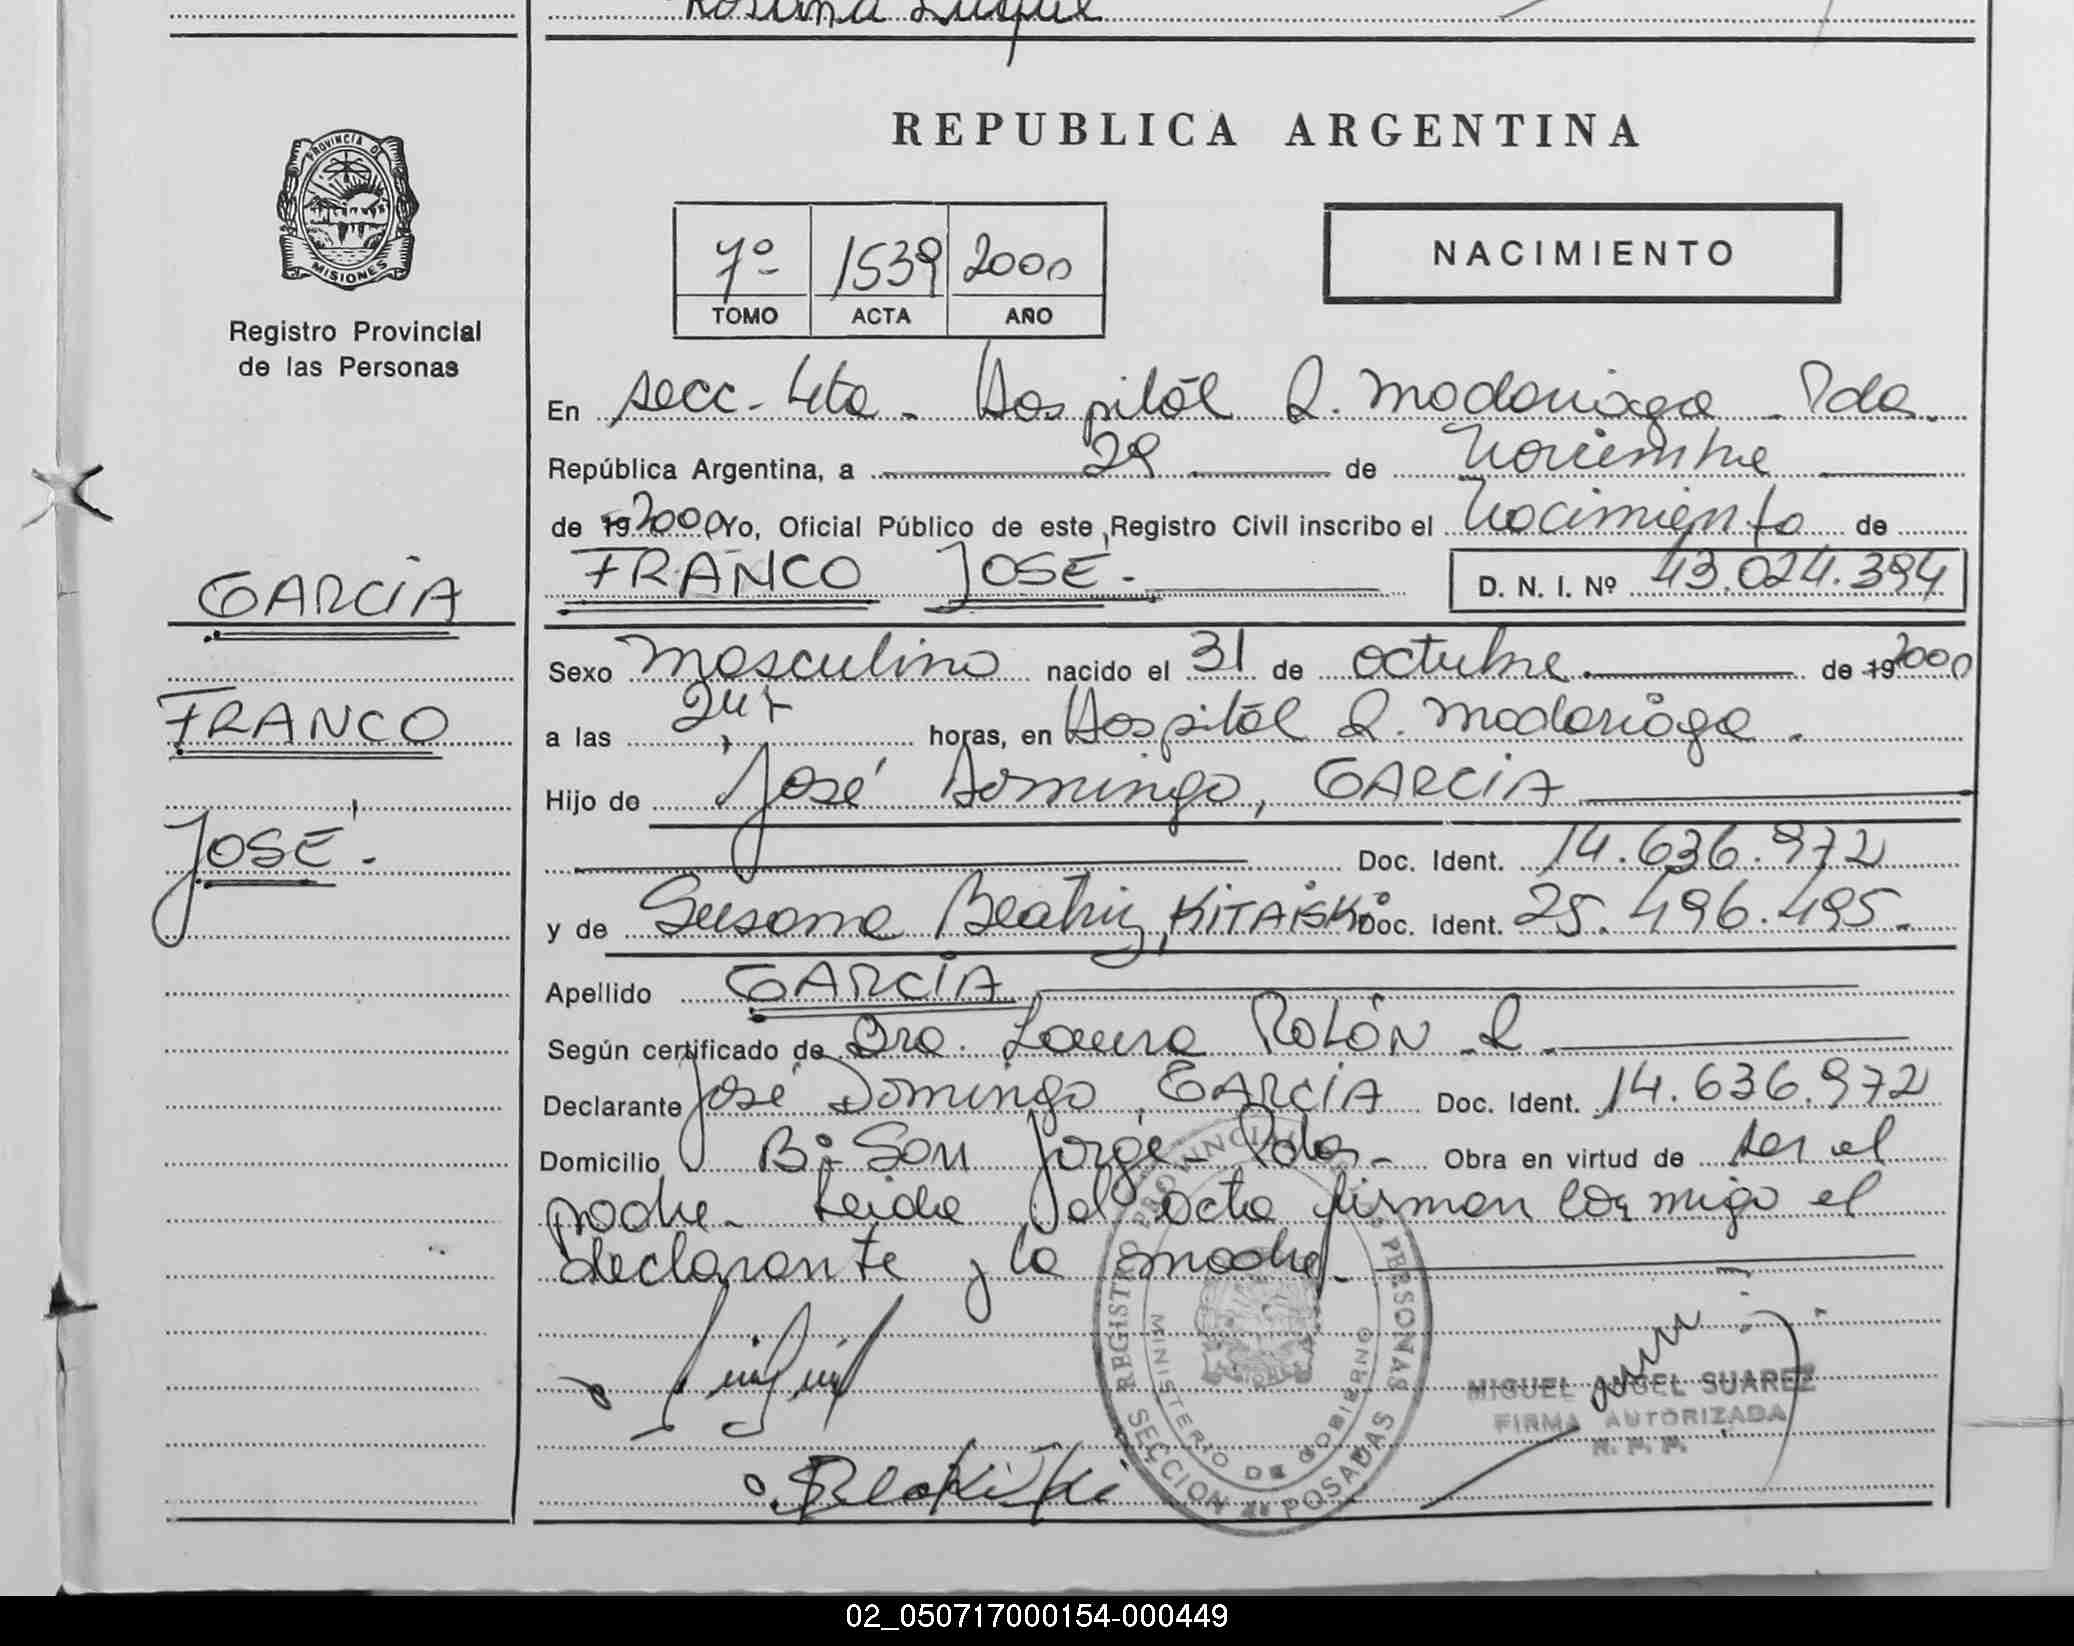 Rosana Luque
PROVINCIA D
MISIONES
Registro Provincial
de las Personas
GARCIA
FRANCO
JOSÉ.
REPUBLICA ARGENTINA
7º 1539 2000
TOMO ACTA AÑO
NACIMIENTO
En secc- 4ta - Hospitál R. Madariaga - Pdas.
República Argentina, a 29 de Noviembre
de 19 2000 Yo, Oficial Público de este Registro Civil inscribo el Nacimiento de
FRANCO JOSÉ.- D. N. I. Nº 43.024.394
Sexo Masculino nacido el 31 de octubre de 19 2000
a las horas, en Hospitál R. Madariaga.
Hijo de José Domingo, GARCIA
Doc. Ident. 14.636.972
y de Susana Beatriz, KITAISKI Doc. Ident. 25.496.495.-
Apellido GARCIA
Según certificado de Dra. Laura ROLÓN R.
Declarante José Domingo, GARCIA Doc. Ident. 14.636.972
Domicilio Bº San Jorge - Pdas - Obra en virtud de ser el
padre. Leida el acta firman conmigo el
declarante y la madre.
REGISTRO PROVINCIAL DE LAS PERSONAS
MINISTERIO DE GOBIERNO
SECCION 4ª POSADAS
MIGUEL ANGEL SUAREZ
FIRMA AUTORIZADA
R. P. P.
02_050717000154-000449